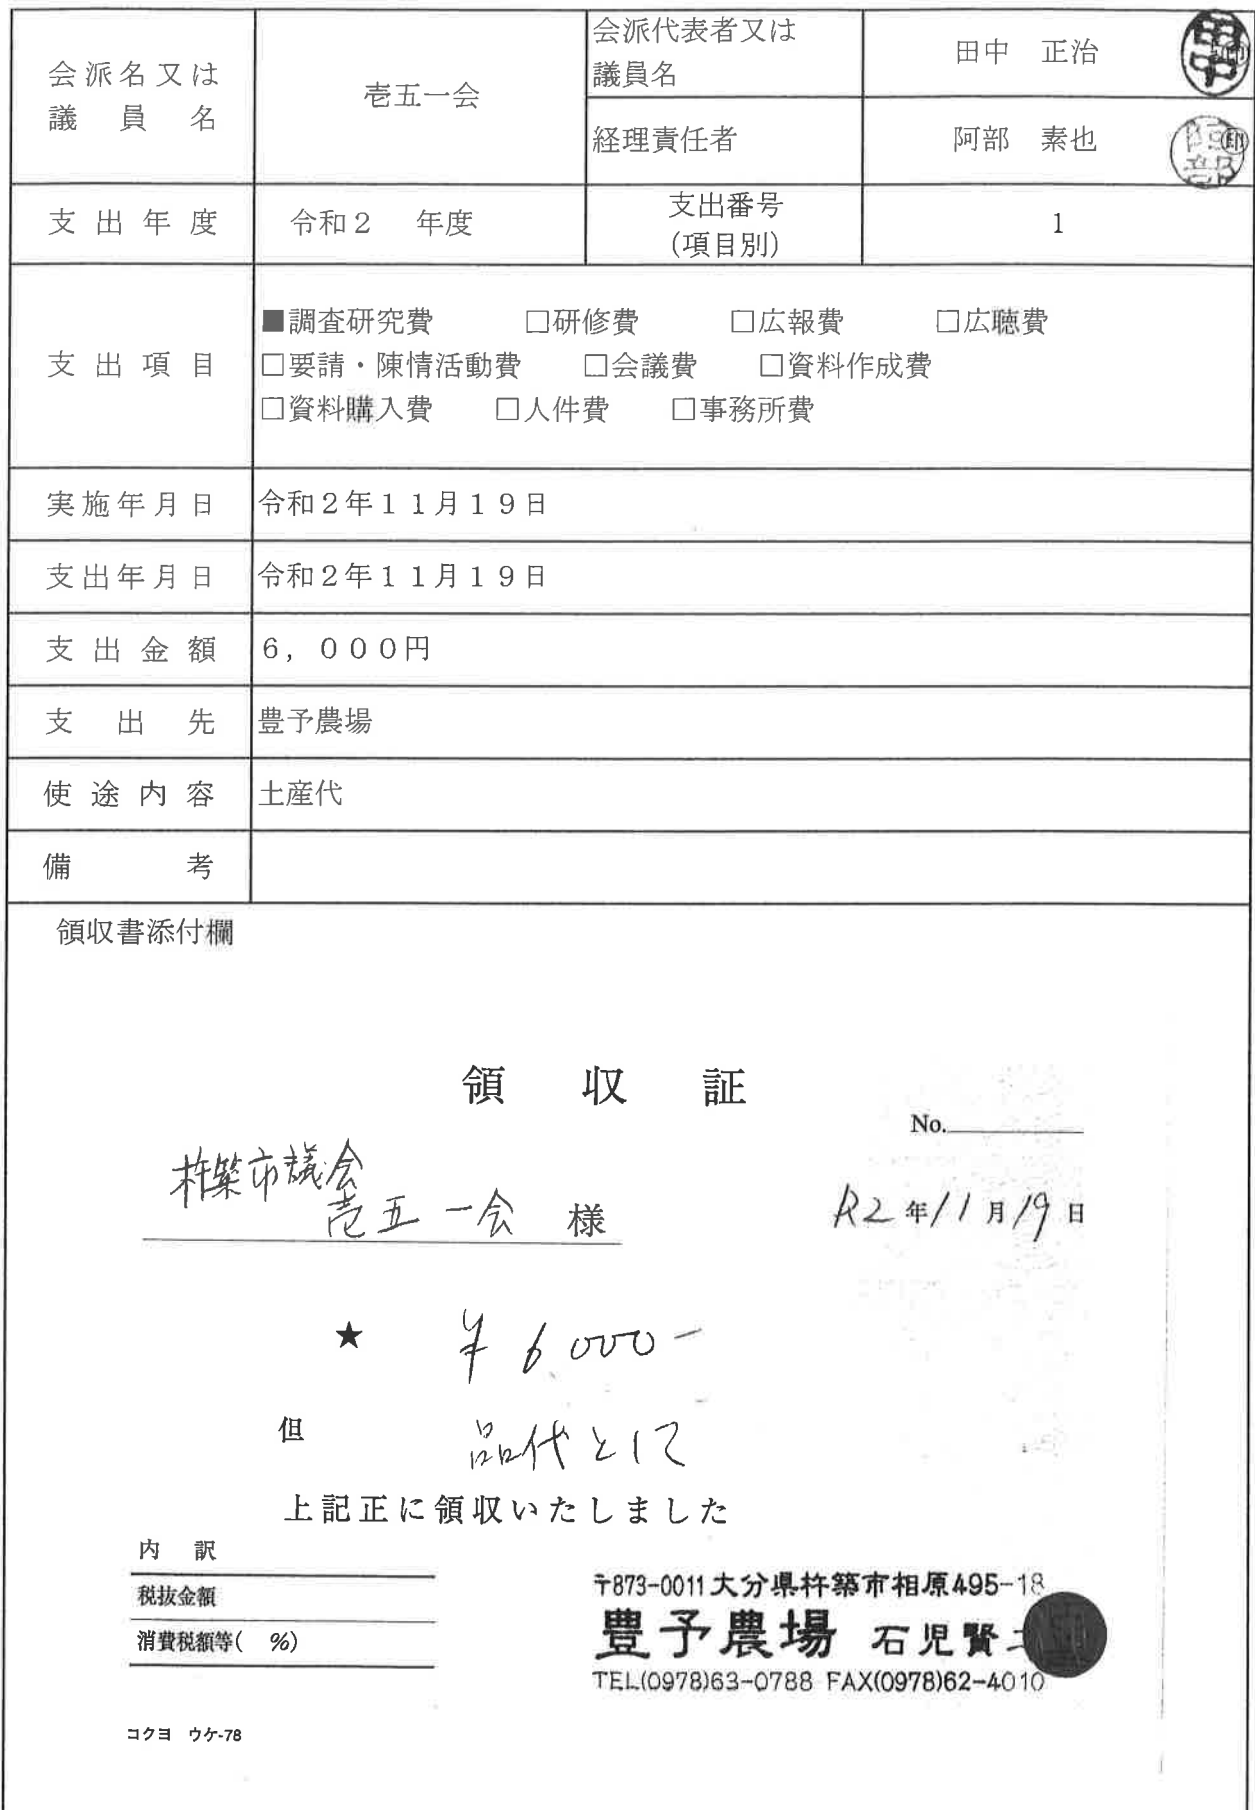 会派名又は
議員名
壱五一会
会派代表者又は
議員名
田中 正治
田中
印
経理責任者
阿部 素也
阿部
印
支出年度
令和２ 年度
支出番号
(項目別)
1
支出項目
■調査研究費 □研修費 □広報費 □広聴費
□要請・陳情活動費 □会議費 □資料作成費
□資料購入費 □人件費 □事務所費
実施年月日
令和２年１１月１９日
支出年月日
令和２年１１月１９日
支出金額
６，０００円
支出先
豊予農場
使途内容
土産代
備考
領収書添付欄
領収証
No.
杵築市議会
壱五一会 様
R2年11月19日
★ ¥6000-
但 品代として
上記正に領収いたしました
内訳
税抜金額
消費税額等( %)
〒873-0011大分県杵築市相原495-18
豊予農場 石児賢
TEL(0978)63-0788 FAX(0978)62-4010
コクヨ ウケ-78